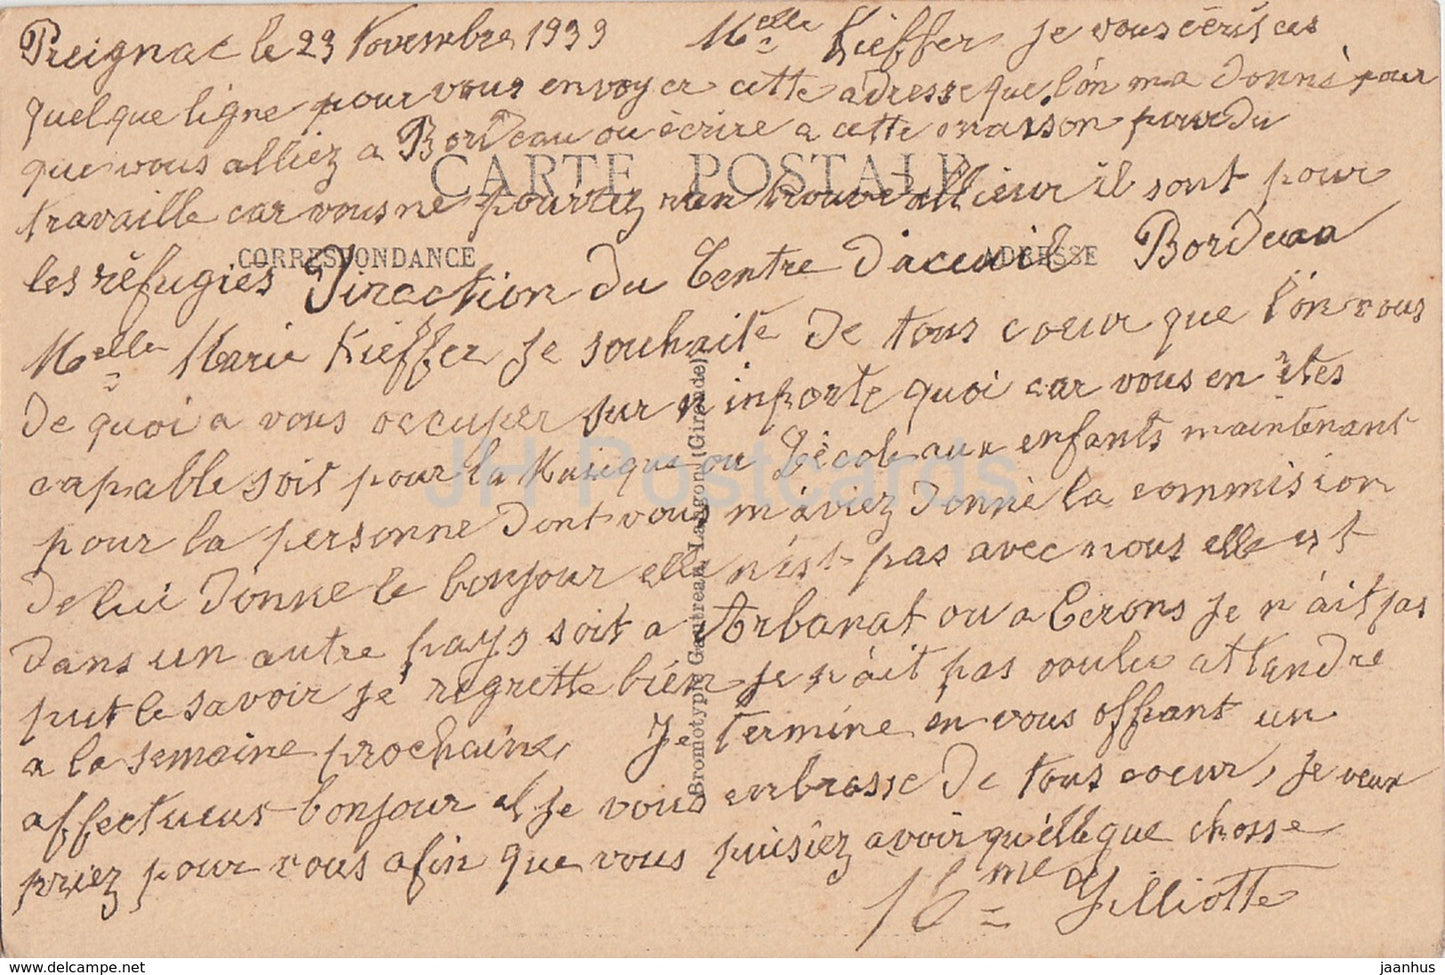 Preignac le 23 Novembre 1939 Melle Kieffer je vous écris ces
quelque ligne pour vous envoyer cette adresse que l'on ma donné pour
que vous alliez a Bordeau ou écrire a cette maison pour du
CARTE POSTALE
travaille car vous ne pourrez rien trouve allieur il sont pour
CORRESPONDANCE
ADRESSE
les réfugiés Direction du Centre D'acceuil Bordeau
Melle Marie Kieffer je souhaite de tous coeur que l'on vous
de quoi a vous occuper sur n'inporte quoi car vous en êtes
capable soit pour la Musique ou L'école aux enfants maintenant
pour la personne dont vous m'aviez donné la commision
de lui donne le bonjour elle n'est pas avec nous elle est
dans un autre pays soit a Arbanat ou a Cerons je n'ait pas
put le savoir je regrette bien je n'ait pas voulu attendre
a la semaine prochaine, Je termine en vous offrant un
affectueux bonjour et je vous embrasse de tous coeur, je veux
priez pour vous afin que vous puisiez avoir qu'elleque chosse
Mme Gilliotte
Bromotypie Gautreau, Langon (Gironde)
JH Postcards
www.delcampe.net
jaanhus